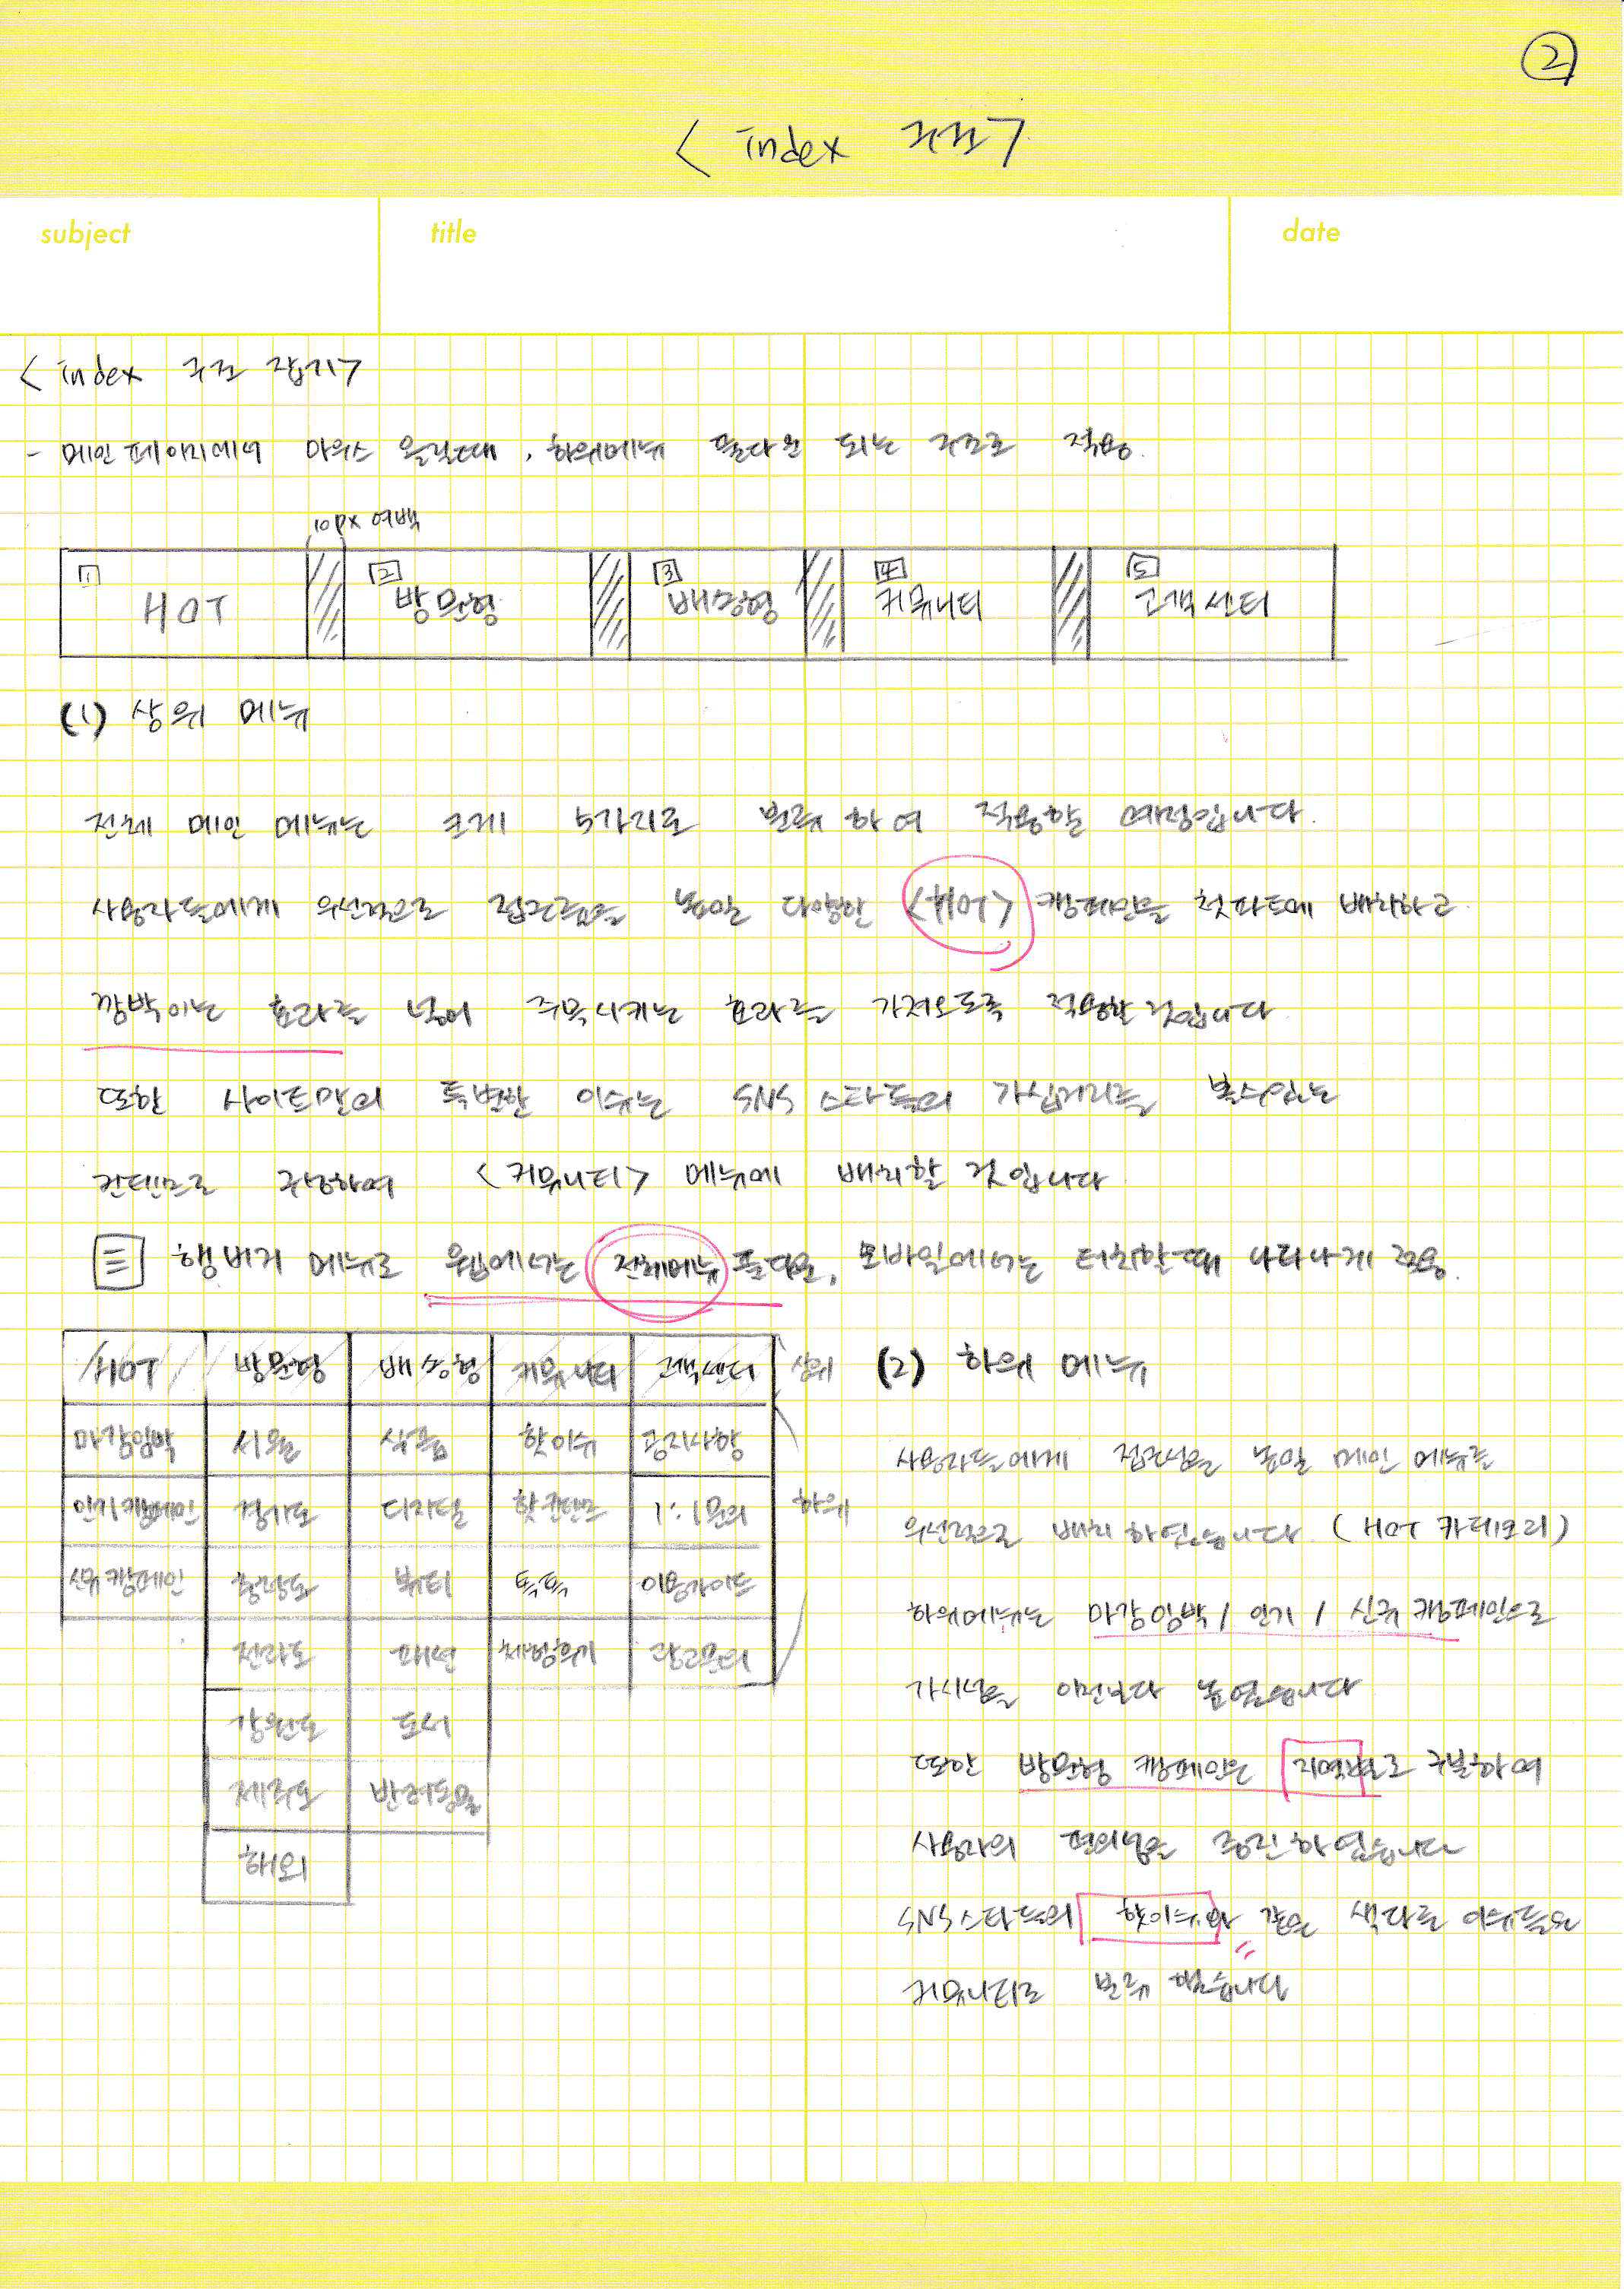 ②
< index 구조 >
subject
title
date
< index 구조 잡기 >
- 메인페이지에서 마우스 올릴때, 하위메뉴 풀다운 되는 구조로 적용.
10px 여백
1 HOT
2 방문형
3 배송형
4 커뮤니티
5 고객센터
(1) 상위 메뉴
전체 메인 메뉴는 크게 5가지로 분류하여 적용할 예정입니다.
사용자들에게 우선적으로 접근률을 높일 다양한 <HOT> 캠페인을 첫파트에 배치하고
깜박이는 효과를 넣어 주목시키는 효과를 가져오도록 적용할 것입니다
또한 사이트만의 특별한 이슈는 SNS 스타들의 가십거리를 볼수있는
컨텐츠로 구성하여 <커뮤니티> 메뉴에 배치할 것입니다
햄버거 메뉴로 웹에서는 전체메뉴 풀다운, 모바일에서는 터치할때 나타나게 적용.
HOT 방문형 배송형 커뮤니티 고객센터 상위
마감임박 서울 식품 핫이슈 공지사항
인기캠페인 경기도 디지털 핫콘텐츠 1:1문의 하위
신규캠페인 충청도 뷰티 톡톡 이용가이드
전라도 패션 체험후기 광고문의
강원도 도서
제주도 반려동물
해외
(2) 하위 메뉴
사용자들에게 접근성을 높일 메인 메뉴를
우선적으로 배치 하였습니다 (HOT 카테고리)
하위메뉴는 마감임박 / 인기 / 신규 캠페인으로
가시성을 이전보다 높였습니다
또한 방문형 캠페인은 지역별로 구분하여
사용자의 편의성을 증진하였습니다
SNS스타들의 핫이슈와 같은 색다른 이슈들도
커뮤니티로 분류 했습니다